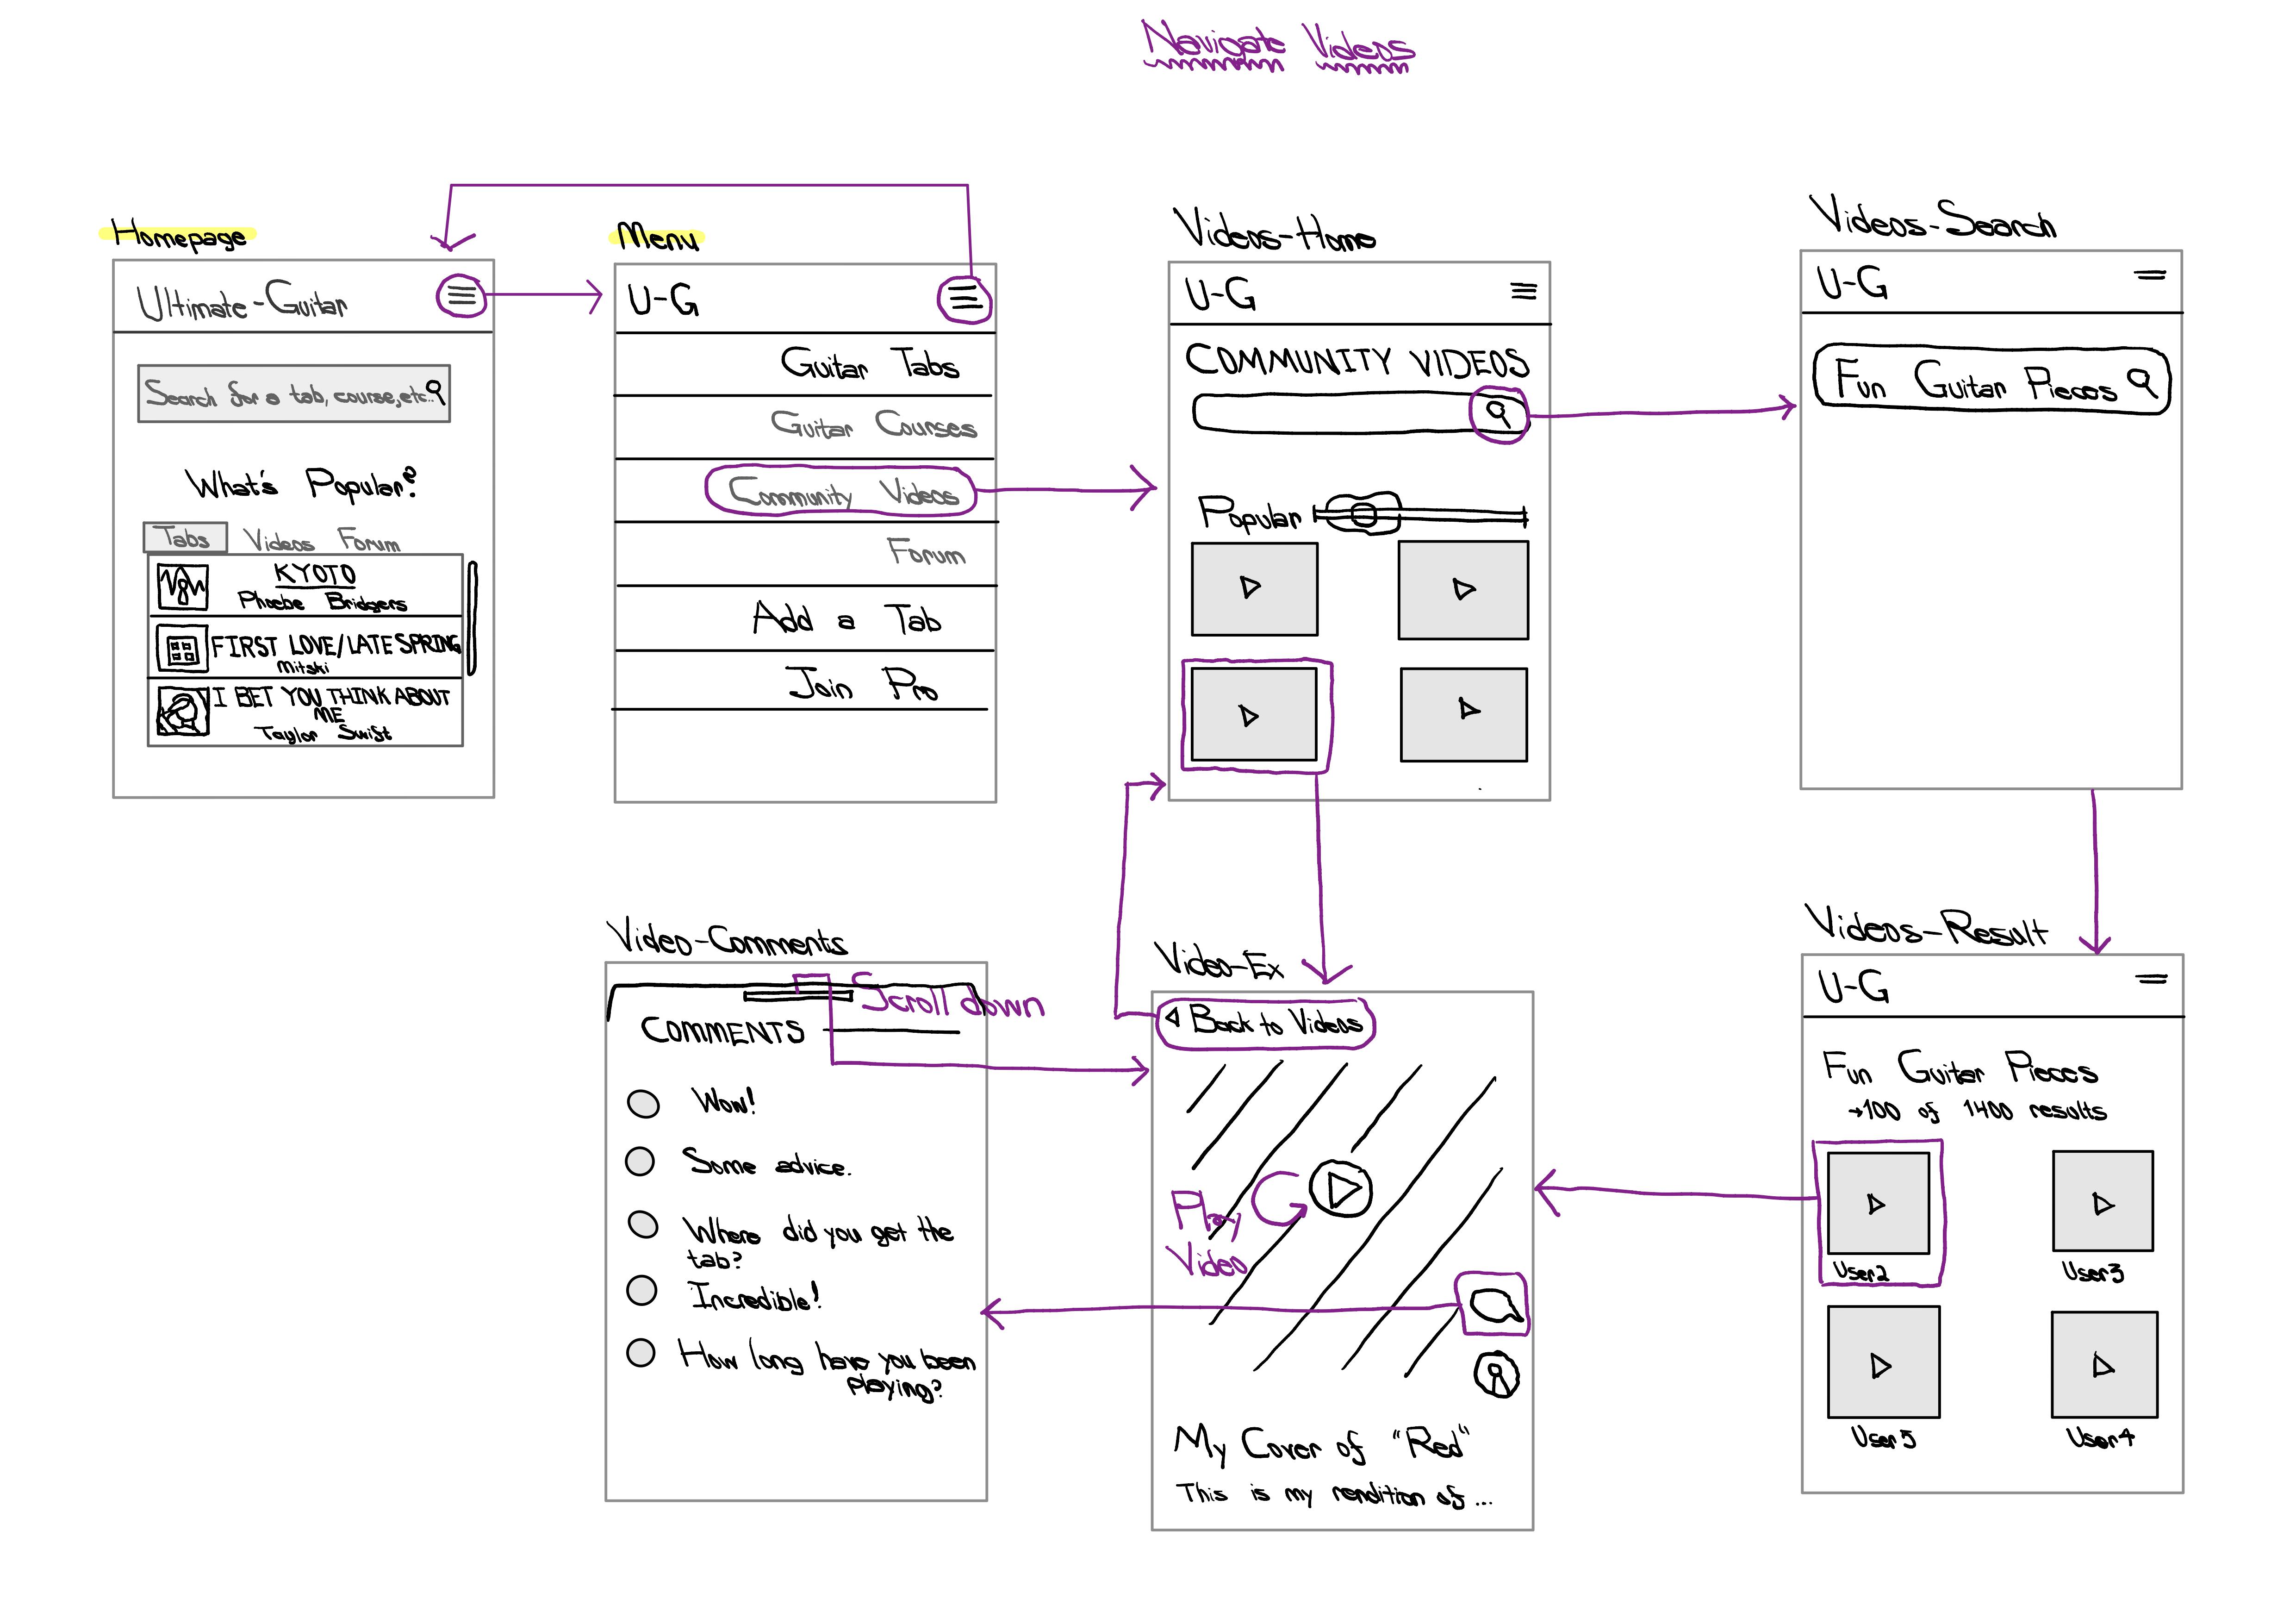 Navigate Videos
Homepage
Ultimate-Guitar
Search for a tab, course, etc..
What's Popular?
Tabs Videos Forum
KYOTO
Phoebe Bridgers
FIRST LOVE/LATE SPRING
Mitski
I BET YOU THINK ABOUT
ME
Taylor Swift
Menu
U-G
Guitar Tabs
Guitar Courses
Community Videos
Forum
Add a Tab
Join Pro
Videos-Home
U-G
COMMUNITY VIDEOS
Popular
Videos-Search
U-G
Fun Guitar Pieces
Video-Comments
Scroll down
COMMENTS
Wow!
Some advice.
Where did you get the
tab?
Incredible!
How long have you been
playing?
Video-Ex
Back to Videos
Play
Video
My Cover of "Red"
This is my rendition of ...
Videos-Result
U-G
Fun Guitar Pieces
→100 of 1400 results
User2
User3
User5
User4